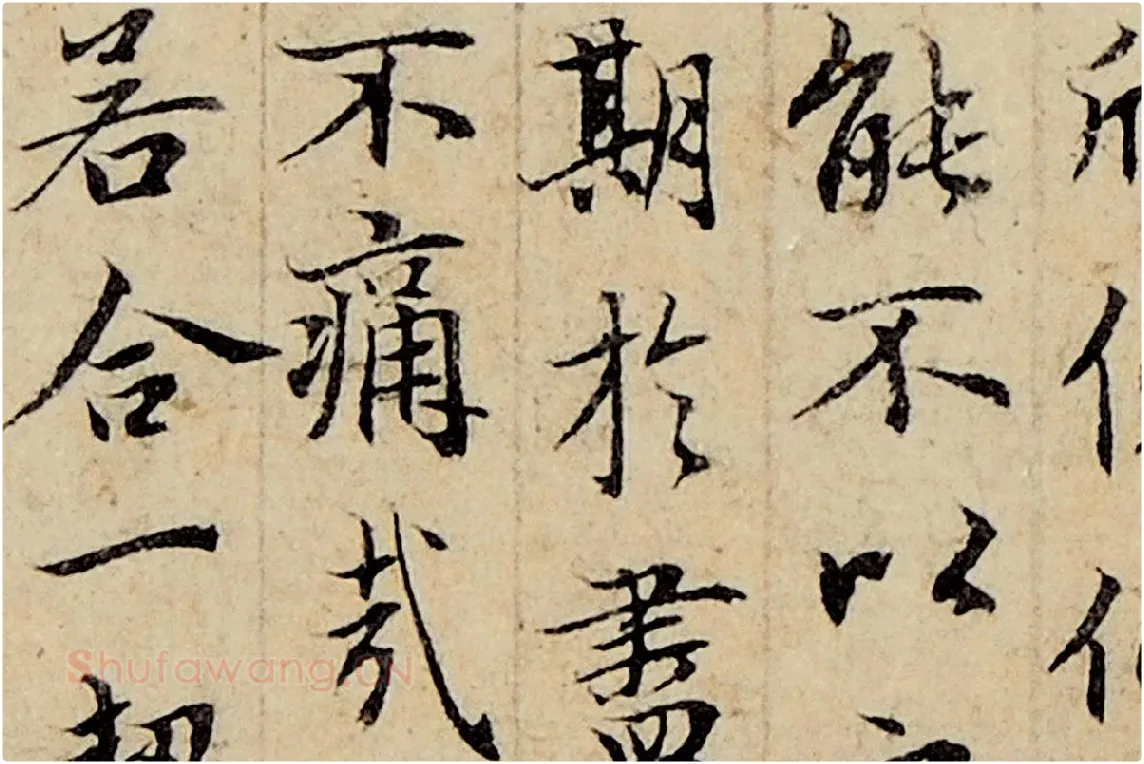 能不以
期於盡
不痛哉
若合一契
Shufawang.CN